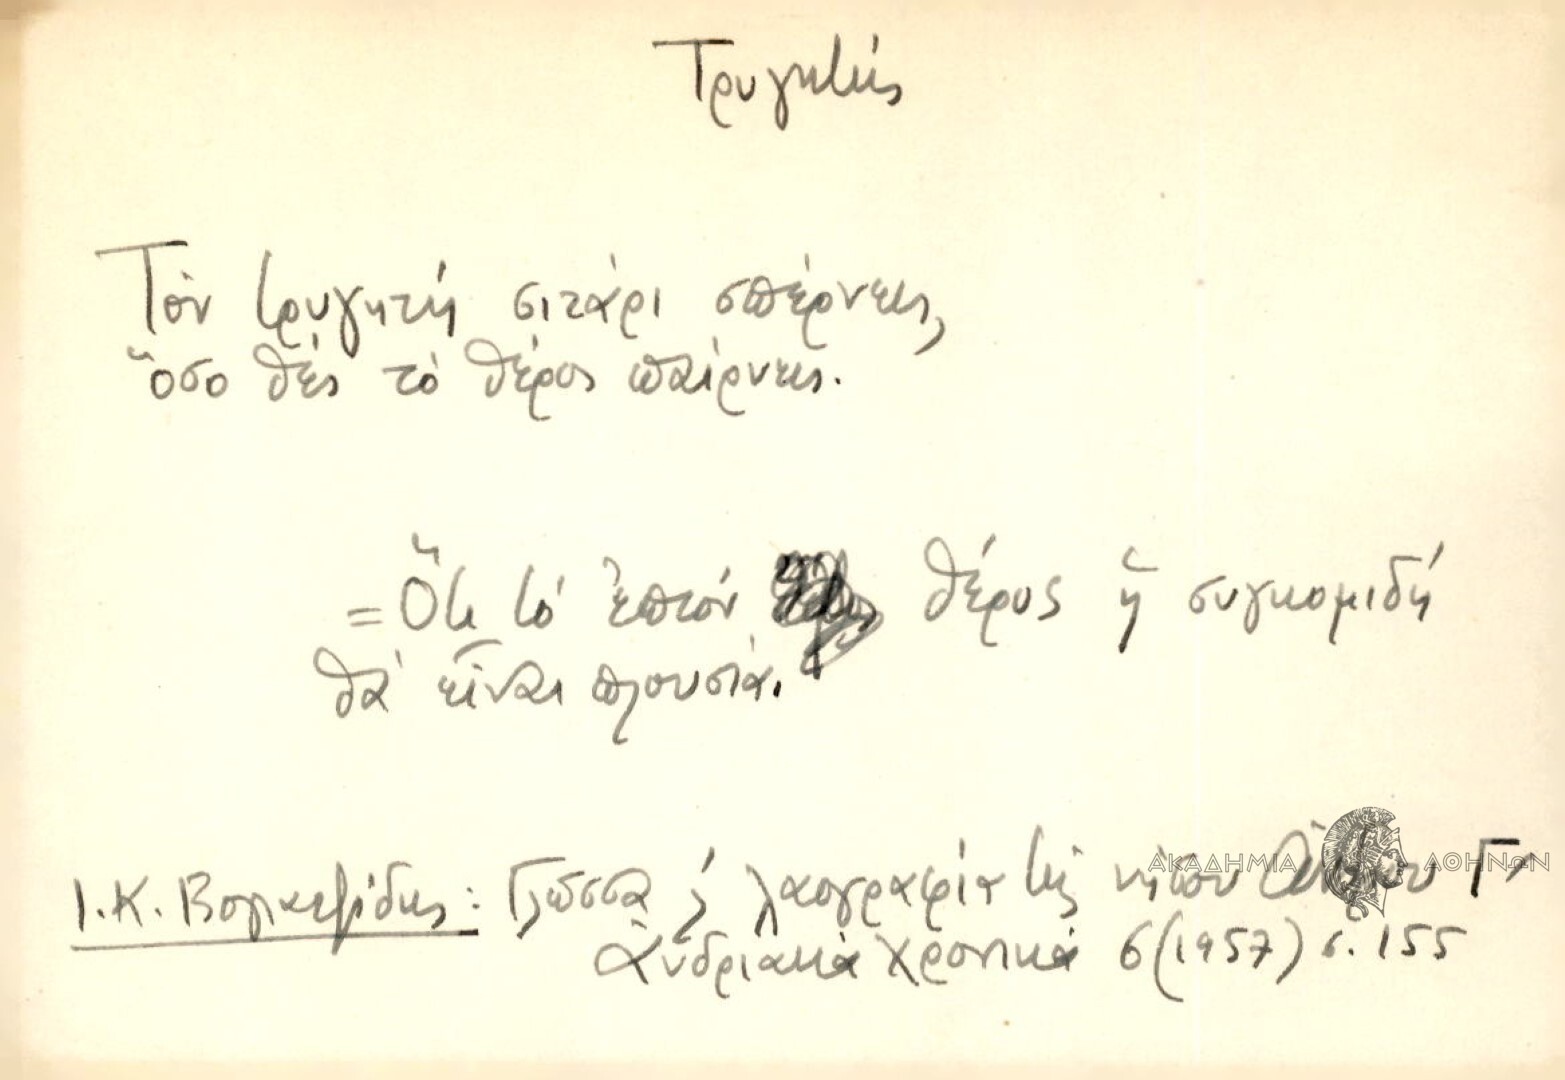 Τρυγητής
Τὸν τρυγητή σιτάρι σπέρνεις,
ὅσο θές τὸ θέρος παίρνεις.
= Ὅτι τό θέρος ἤ συγκομιδή
θά εἶναι πλουσία.
Ι. Κ. Βογιατζίδης: Γλῶσσα λαογραφία τῆς νήσου Ἄνδρου Γ'
Ἀνδριακά Χρονικά 6 (1957) σ. 155
ΑΚΑΔΗΜΙΑ ΑΘΗΝΩΝ